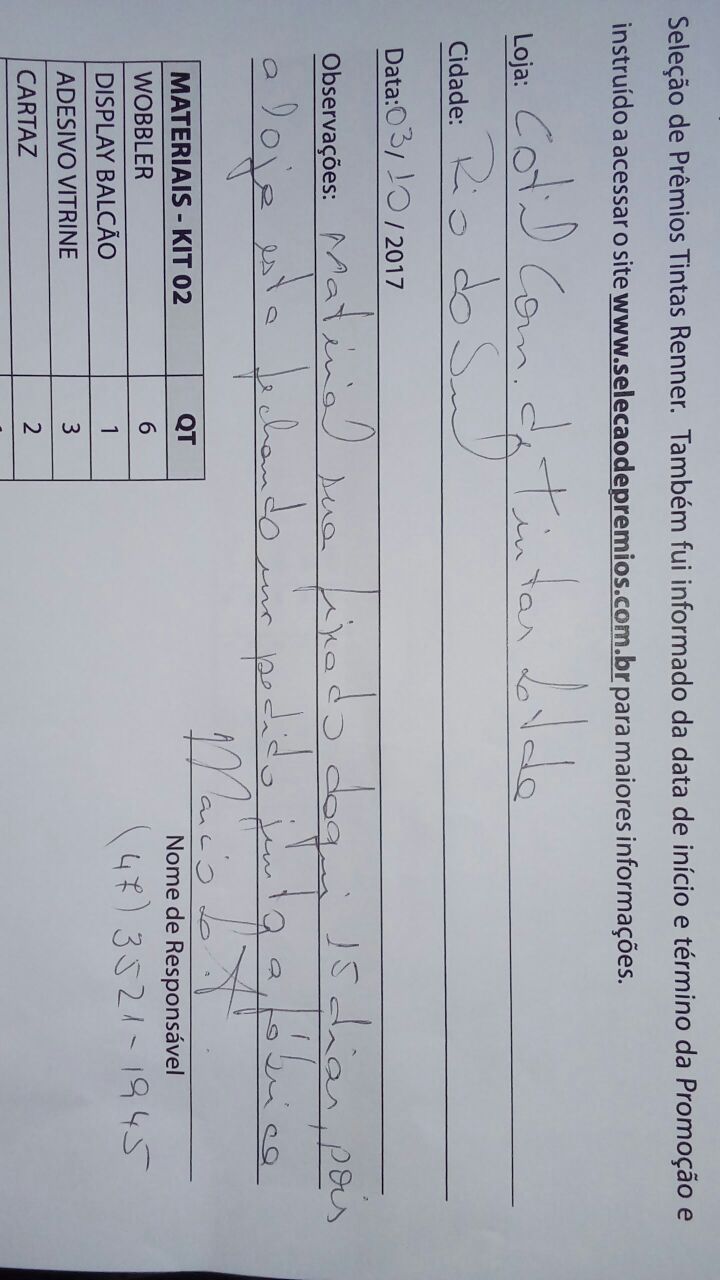 Seleção de Prêmios Tintas Renner. Também fui informado da data de início e término da Promoção e
instruído a acessar o site www.selecaodepremios.com.br para maiores informações.
Loja: Cotil Com. de Tintas Ltda
Cidade: Rio do Sul
Data: 03/10/2017
Observações: Material sera fixado daqui 15 dias, pois
a loja esta fechando um pedido junto a fábrica
Nome de Responsável
(47) 3521-1945
MATERIAIS - KIT 02 QT
WOBBLER 6
DISPLAY BALCÃO 1
ADESIVO VITRINE 3
CARTAZ 2